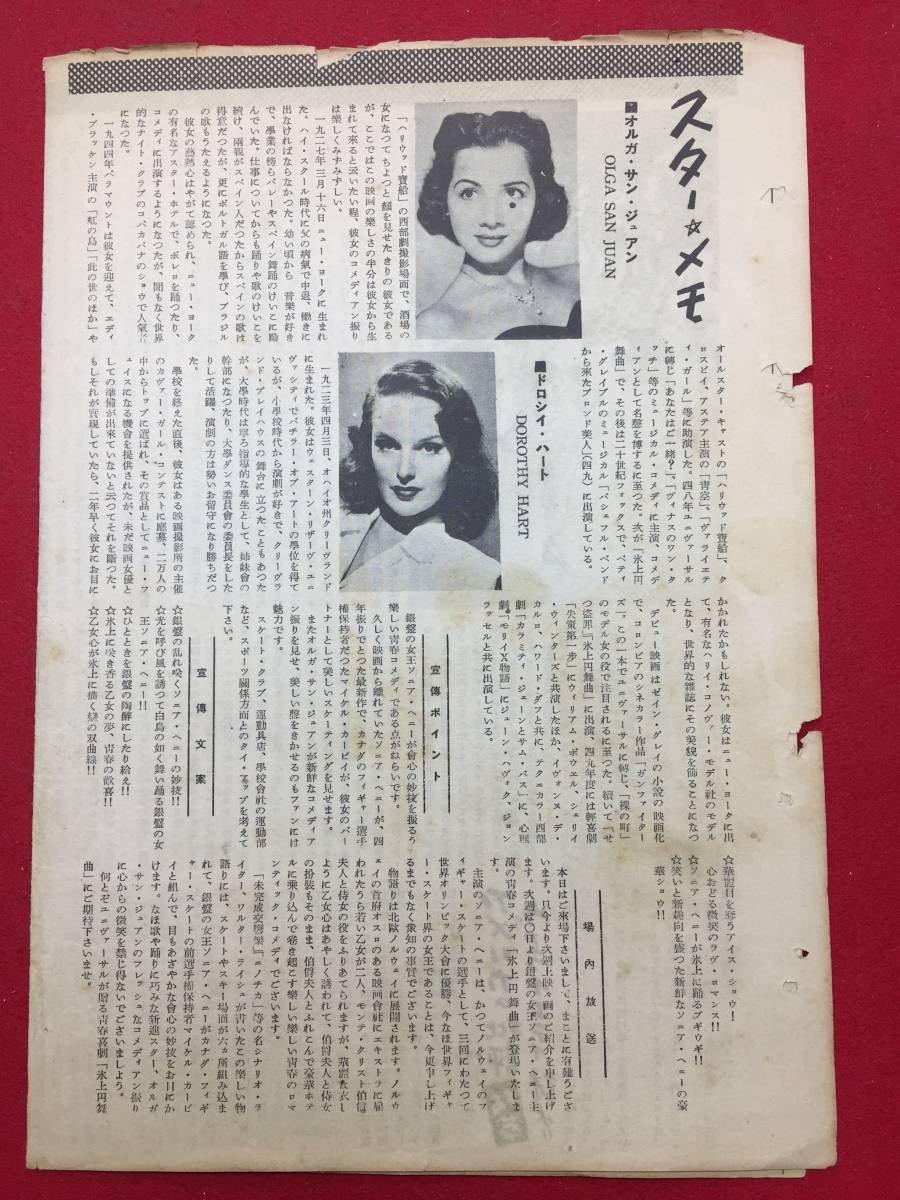 スター☆メモ
■オルガ・サン・ジュアン
OLGA SAN JUAN
「ハリウッド寶船」の西部劇撮影場面で、酒場の
女になつてちよつと顔を見せたきりの彼女である
が、ここではこの映画の楽しさの半分は彼女から生
まれて來ると云いたい程、彼女のコメディアン振り
は楽しくみずみずしい。
一九二七年三月十六日ニュー・ヨークに生まれ
た。ハイ・スクール時代に父の病氣で中退、働きに
出なければならなかつた。幼い頃から音樂が好き
で、學業の傍らバレーやスペイン舞踊のけいこに励
んでいた。仕事についてからも踊りや歌のけいこを
続け、両親がスペイン人だつたからスペインの歌は
得意だつたが、更にポルトガル語を學び、ブラジル
の歌もうたえるようになつた。
彼女の熱心はやがて認められ、ニュー・ヨーク
の有名なアスター・ホテルで、ボレロを踊つたり、
コメディに出演するようになつたが、間もなく世界
的なナイト・クラブのコパカバナのショウで人氣者
になつた。
一九四四年パラマウントは彼女を迎えて、エディ
・ブラッケン主演の「虹の島」「此の世のほか」や
オールスター・キャストの「ハリウッド寶船」、ク
ロスビイ、アステア主演の「青空」、「ヴァライエテ
ィ・ガール」等に助演した。四八年ユニヴァーサル
に轉じ「あなたはご一緒？」、「ヴィナスのワン・タ
ッチ」等のミュージカル・コメディに主演、コメデ
ィアンとして名聲を博するに至つた。次が「氷上円
舞曲」で、その後は二十世紀フォックスで、ベティ
・グレイブルのミュージカル「バシェフル・ベンド
から來たブロンド美人」（四九）に出演している。
■ドロシイ・ハート
DOROTHY HART
一九二三年四月三日、オハイオ州クリーヴランド
に生まれた。彼女はウェスターン・リザーヴ・ユニ
ヴァシティでバチラー・オブ・アートの學位を得て
いるが、小學校時代から演劇が好きで、クリーヴラ
ンド・プレイハウスの舞台に立つたこともあつた
が、大學時代は寧ろ指導的な學生として、姉妹會の
幹部になつたり、大學ダンス委員會の委員長をした
りして活躍、演劇の方は勢いお留守になり勝ちだつ
た。
學校を終えた直後、彼女はある映画撮影所の主催
のカヴァー・ガール・コンテストに應募、二万人の
中からトップに選ばれ、その賞品としてニュー・フ
ェイスになる機會を提供されたが、未だ映画女優と
しての準備が出來ていないと云つてそれを断つた。
もしそれが實現していたら、二年早く彼女にお目に
かかれたかもしれない。彼女はニュー・ヨークに出
て、有名なハリイ・コノヴァー・モデル社のモデル
となり、世界的な雑誌にその美貌を飾ることになつ
た。
デビュー映画はゼイン・グレイの小説の映画化
で、コロンビアのシネカラー作品「ガンファイター
ズ」。この一本でユニヴァーサルに轉じ、「裸の町」
のモデル女の役で注目されるに至つた。続いて「せ
つ盗罪」「氷上円舞曲」に出演、四九年度には軽喜劇
「失策第一歩」にウィリアム・ポウエル、シェリイ
・ウィンターズと共演したほか、イヴォンヌ・デ・
カルロ、ハワード・ダフと共に、テクニカラー西部
劇「カラミティ・ジェーンとサム・バス」に、心理
劇「モリイX物語」にジューン・ハヴォク、ジョン
ラッセルと共に出演している。
宣傳ポイント
銀盤の女王ソニア・ヘニーが會心の妙技を振るう
樂しい青春コメディである点がねらいです。
久しく映画から離れていたソニア・ヘニーが、四
年振りでとつた最新作で、カナダのフィギャー選手
権保持者だつたマイケル・カービイが、彼女のパー
トナーとして美しいスケーティングを見せます。
またオルガ・サン・ジュアンが新鮮なコメディア
ン振りを見せ、美しい聲をきかせるのもファンには
魅力です。
スケート・クラブ、運動具店、學校會社の運動部
など、スポーツ関係方面とのタイ・アップを考えて
下さい。
宣傳文案
☆銀盤の乱れ咲くソニア・ヘニーの妙技!!
☆光を呼び風を誘つて白鳥の如く舞い踊る銀盤の女
王ソニア・ヘニー!!
☆ひとときを銀盤の陶醉にしたり給え!!
☆氷上に咲き香る乙女の夢、青春の歓喜!!
☆乙女心が氷上に描く戀の双曲線!!
☆華麗目を奪うアイス・ショウ!
心おどる微笑のラヴ・ロマンス!!
☆ソニア・ヘニーが氷上に踊るブギウギ!!
☆笑いと新趣向を盛つた新鮮なソニア・ヘニーの豪
華ショウ!!
場內放送
本日はご來場下さいまして、まことに有難うござ
います。只今より次週上映々画のご紹介を申し上げ
ます。次週は〇日より銀盤の女王ソニア・ヘニー主
演の青春コメディ「氷上円舞曲」が登場いたしま
す。
主演のソニア・ヘニーは、かつてノルウェイのフ
ィギャー・スケートの選手として、三回にわたつて
世界オリンピック大會に優勝、今なほ世界フィギャ
ー・スケート界の女王であることは、今更申し上げ
るまでもなく衆知の事實でございます。
物語りは北歐ノルウェイに展開されます。ノルウ
ェイの首府オスロのある映画會社にエキストラに雇
われたうら若い乙女が二人、モンテ・クリスト伯爵
夫人と侍女の役をふりあてられますが、華麗な衣し
ように乙女心はあやしく誘われて、伯爵夫人と侍女
の扮装もそのまま、伯爵夫人とふれこんで豪華ホテ
ルに乗り込んで卷き起こす樂しい樂しい青春のロマ
ンティック・コメディでございます。
「未完成交響樂」「ニノチカ」等の名シナリオ・ラ
イター、ワルター・ライシュが書いたこの樂しい物
語りには、スケートやスキー場面が六ヵ所組み込ま
れて、銀盤の女王ソニア・ヘニーがカナダ・フィギ
ャー・スケートの前選手權保持者マイケル・カービ
イと組んで、目もあざやかな會心の妙技をお目にか
けます。なほ歌や踊りに巧みな新進スター、オルガ
・サン・ジュアンのフレッシュなコメディアン振り
に心からの微笑を禁じ得ないでございましよう。
何とぞユニヴァーサルが贈る青春喜劇「氷上円舞
曲」にご期待下さいませ。